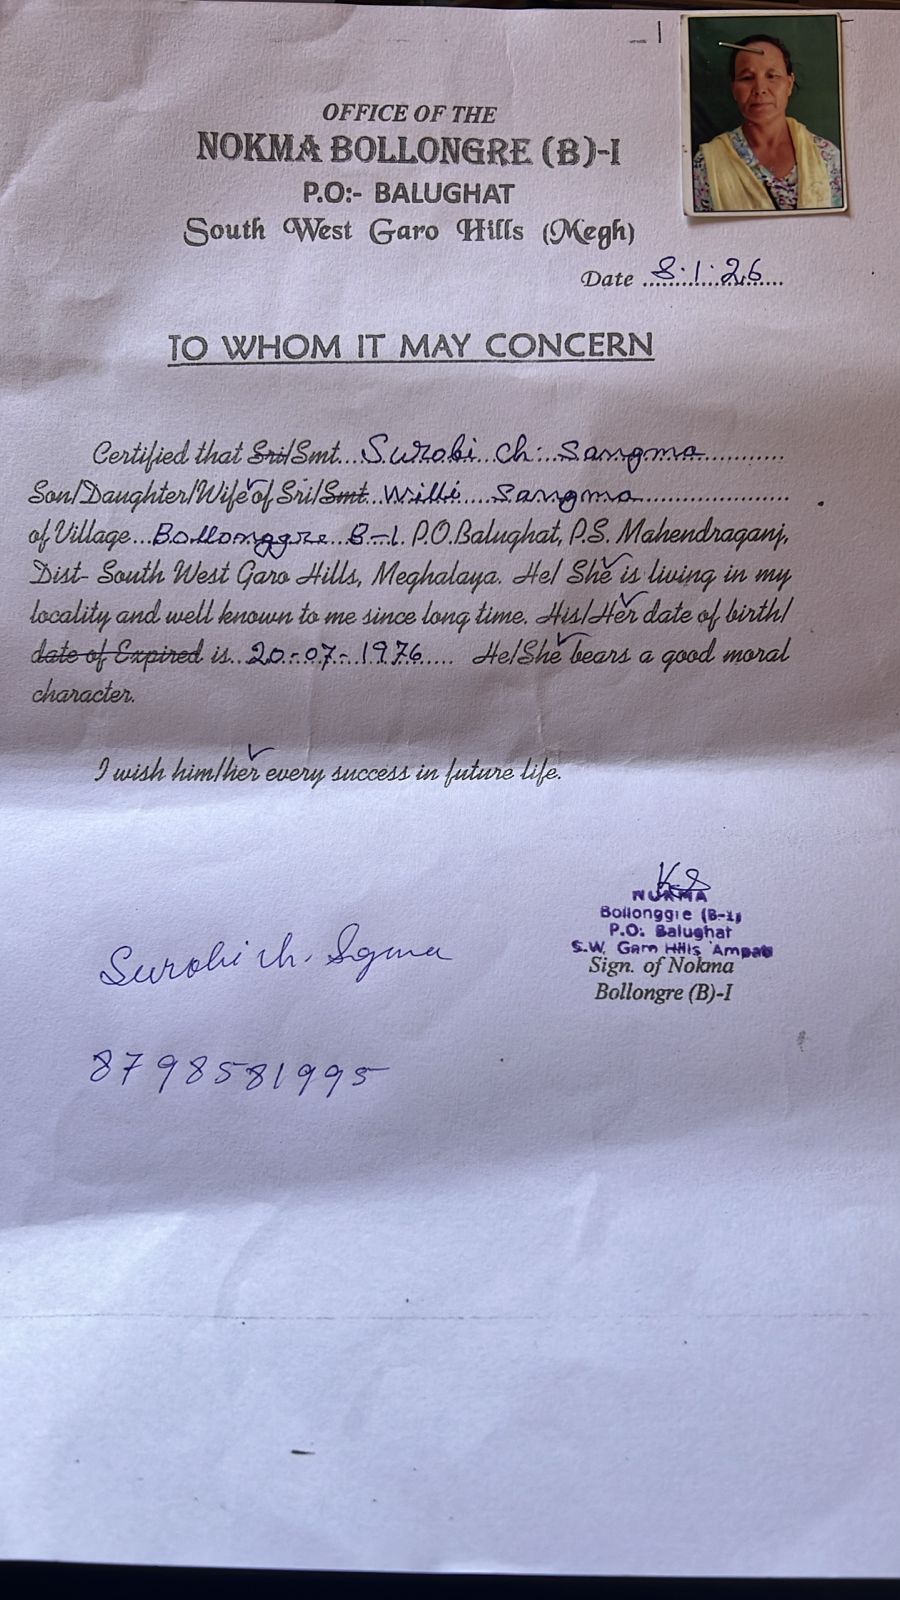 OFFICE OF THE
NOKMA BOLLONGRE (B)-I
P.O:- BALUGHAT
South West Garo Hills (Megh)
Date 8.1.26
TO WHOM IT MAY CONCERN
Certified that Sri/Smt. Surobi Ch. Sangma
Son/Daughter/Wife of Sri/Smt Willi Sangma
of Village Bollonggre B-1. P.O.Balughat, P.S. Mahendraganj,
Dist- South West Garo Hills, Meghalaya. He/ She is living in my
locality and well known to me since long time. His/Her date of birth/
date of Expired is 20-07-1976 He/She bears a good moral
character.
I wish him/her every success in future life.
KS
NOKMA
Bollonggre (B-1)
P.O: Balughat
S.W. Garo Hills Ampati
Sign. of Nokma
Bollongre (B)-I
Surobi ch. Sgma
8798581995